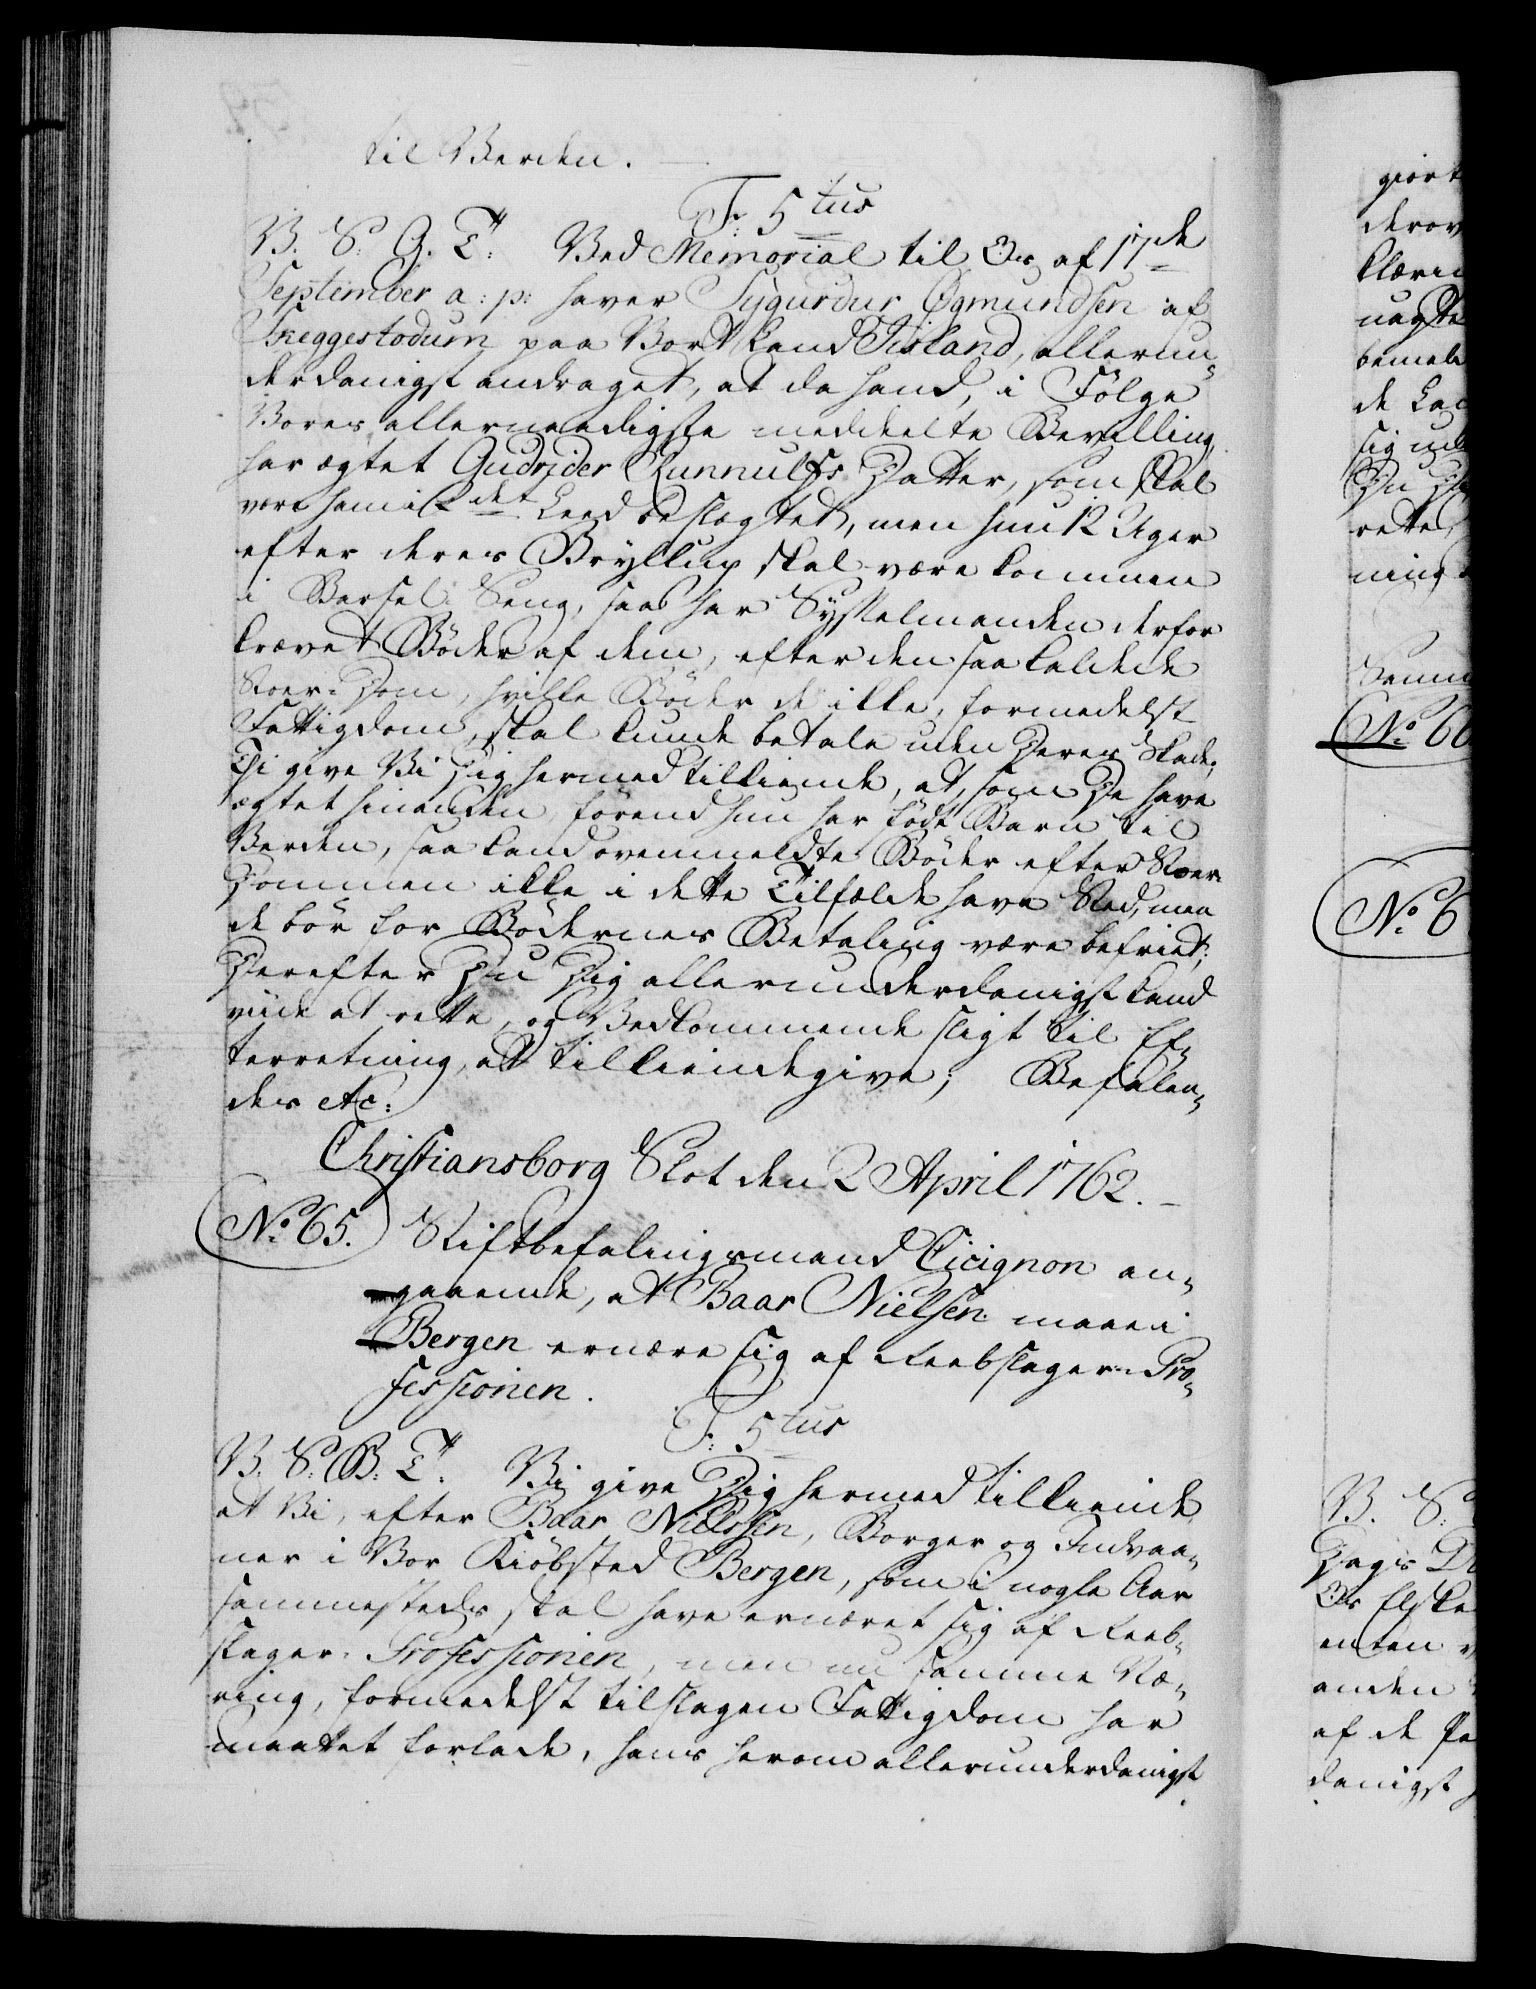 til Verden.
F: 5tus
V. S: G. T: Ved Memorial til Os af 17de
September a: p: haver Sygurdur Øgmundsen af
Skeggestodum paa Vort Land Iisland, allerun-
derdanigst andraget, at da hand, i Følge
Vores allernaadigste meddeelte Bevilling,
har ægtet Gudrider Runnulfs Datter, som skal
være ham i 2det Leed beslægtet, men hun 12 Uger
efter deres Bryllup skal være kommen
i Barsel-Seng, saa har Sysselmanden derfor
krævet Bøder af dem, efter den saa kaldede
Stoer-Dom, hvilke Bøder de ikke, formedelst
Fattigdom, skal kunde betale uden Deres Skade;
Thi give Vi Dig hermed tilkiende, at, som De have
ægtet hinanden, førend hun har født Barn til
Verden, saa kand ovenmeldte Bøder efter Stoer-
Dommen ikke i dette Tilfælde have Sted, men
de bør for Bødernes Betaling være befriet;
Derefter Du Dig allerunderdanigst kand
viide at rette, og Vedkommende sligt til Ef-
terretning, at tilkiendegive; Befalen-
des etc:
Christiansborg Slot den 2 April 1762.
No 65. Stiftbefalingsmand Cicignon an-
gaaende, at Baar Nielsen maae i
Bergen ernære sig af Reebslager-Pro-
fessionen.
F: 5tus
V. S: B: T: Vi give Dig hermed tilkiende
at Vi, efter Baar Nielssen, Borger og Indvaa-
ner i Vor Kiøbsted Bergen, som i nogle Aar
sammesteds skal have ernæret sig af Reeb-
slager-Professionen, men nu samme Næ-
ring, formedelst tilslagen Fattigdom har
maattet forlade, hans herom allerunderdanigst
giort
No 6
No 6
V. S:
anden
af de
danigst